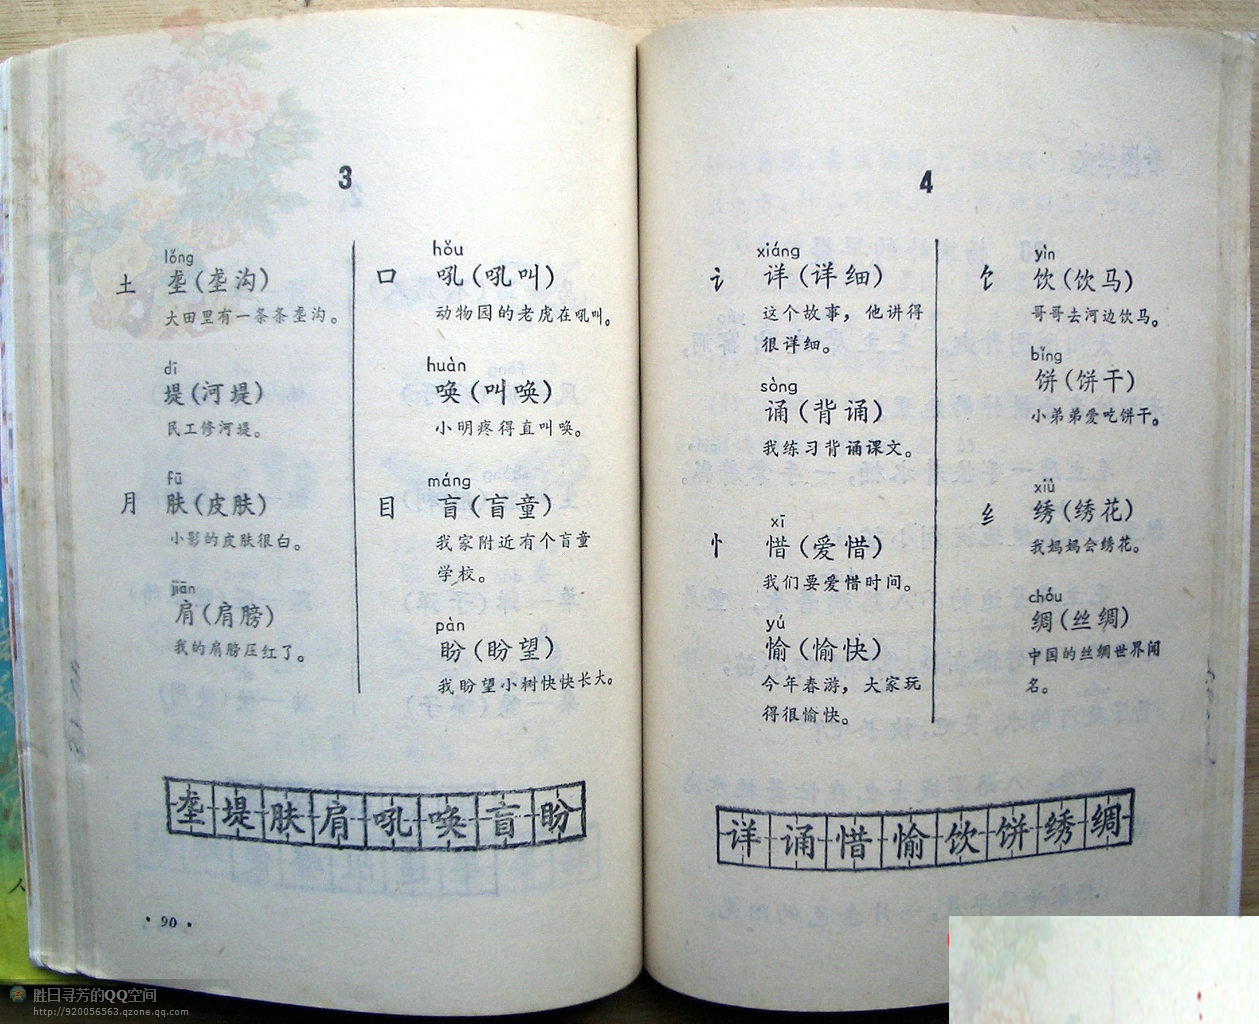 3
lǒng
土 垄(垄沟)
大田里有一条条垄沟。
dī
堤(河堤)
民工修河堤。
fū
月 肤(皮肤)
小影的皮肤很白。
jiān
肩(肩膀)
我的肩膀压红了。
hǒu
口 吼(吼叫)
动物园的老虎在吼叫。
huàn
唤(叫唤)
小明疼得直叫唤。
máng
目 盲(盲童)
我家附近有个盲童
学校。
pàn
盼(盼望)
我盼望小树快快长大。
垄堤肤肩吼唤盲盼
·90·
4
xiáng
讠 详(详细)
这个故事，他讲得
很详细。
sòng
诵(背诵)
我练习背诵课文。
xī
忄 惜(爱惜)
我们要爱惜时间。
yú
愉(愉快)
今年春游，大家玩
得很愉快。
yìn
饣 饮(饮马)
哥哥去河边饮马。
bǐng
饼(饼干)
小弟弟爱吃饼干。
xiù
纟 绣(绣花)
我妈妈会绣花。
chóu
绸(丝绸)
中国的丝绸世界闻
名。
详诵惜愉饮饼绣绸
胜日寻芳的QQ空间
http://920056563.qzone.qq.com